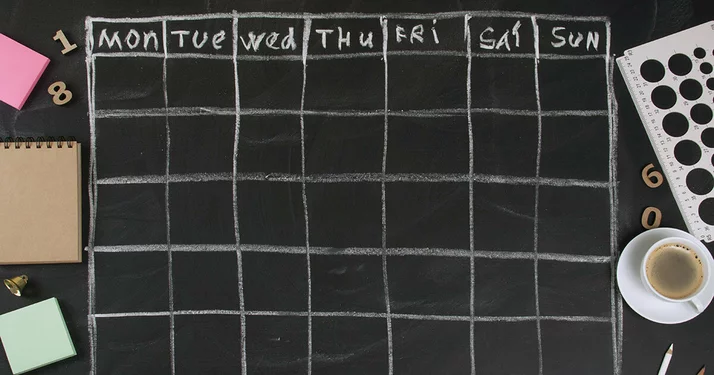 Mon Tue wed THu FRi SAT SUN
1
8
6
0